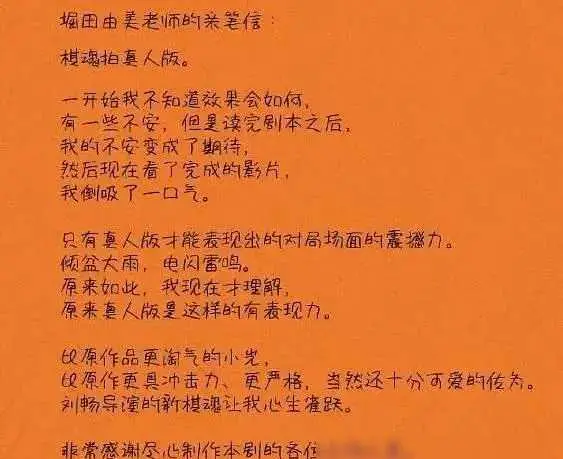 堀田由美老师的亲笔信：
棋魂拍真人版。
一开始我不知道效果会如何，
有一些不安，但是读完剧本之后，
我的不安变成了期待，
然后现在看了完成的影片，
我倒吸了一口气。
只有真人版才能表现出的对局场面的震撼力。
倾盆大雨，电闪雷鸣。
原来如此，我现在才理解，
原来真人版是这样的有表现力。
比原作品更淘气的小光，
比原作更具冲击力、更严格，当然还十分可爱的佐为。
刘畅导演的新棋魂让我心生雀跃。
非常感谢尽心制作本剧的各位